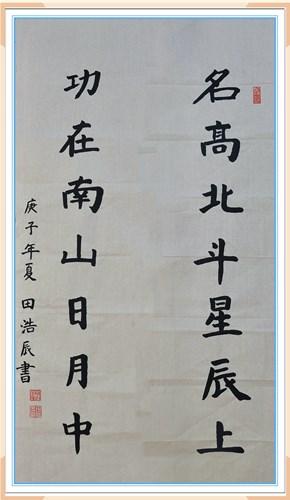 名高北斗星辰上
功在南山日月中
庚子年夏 田浩辰書